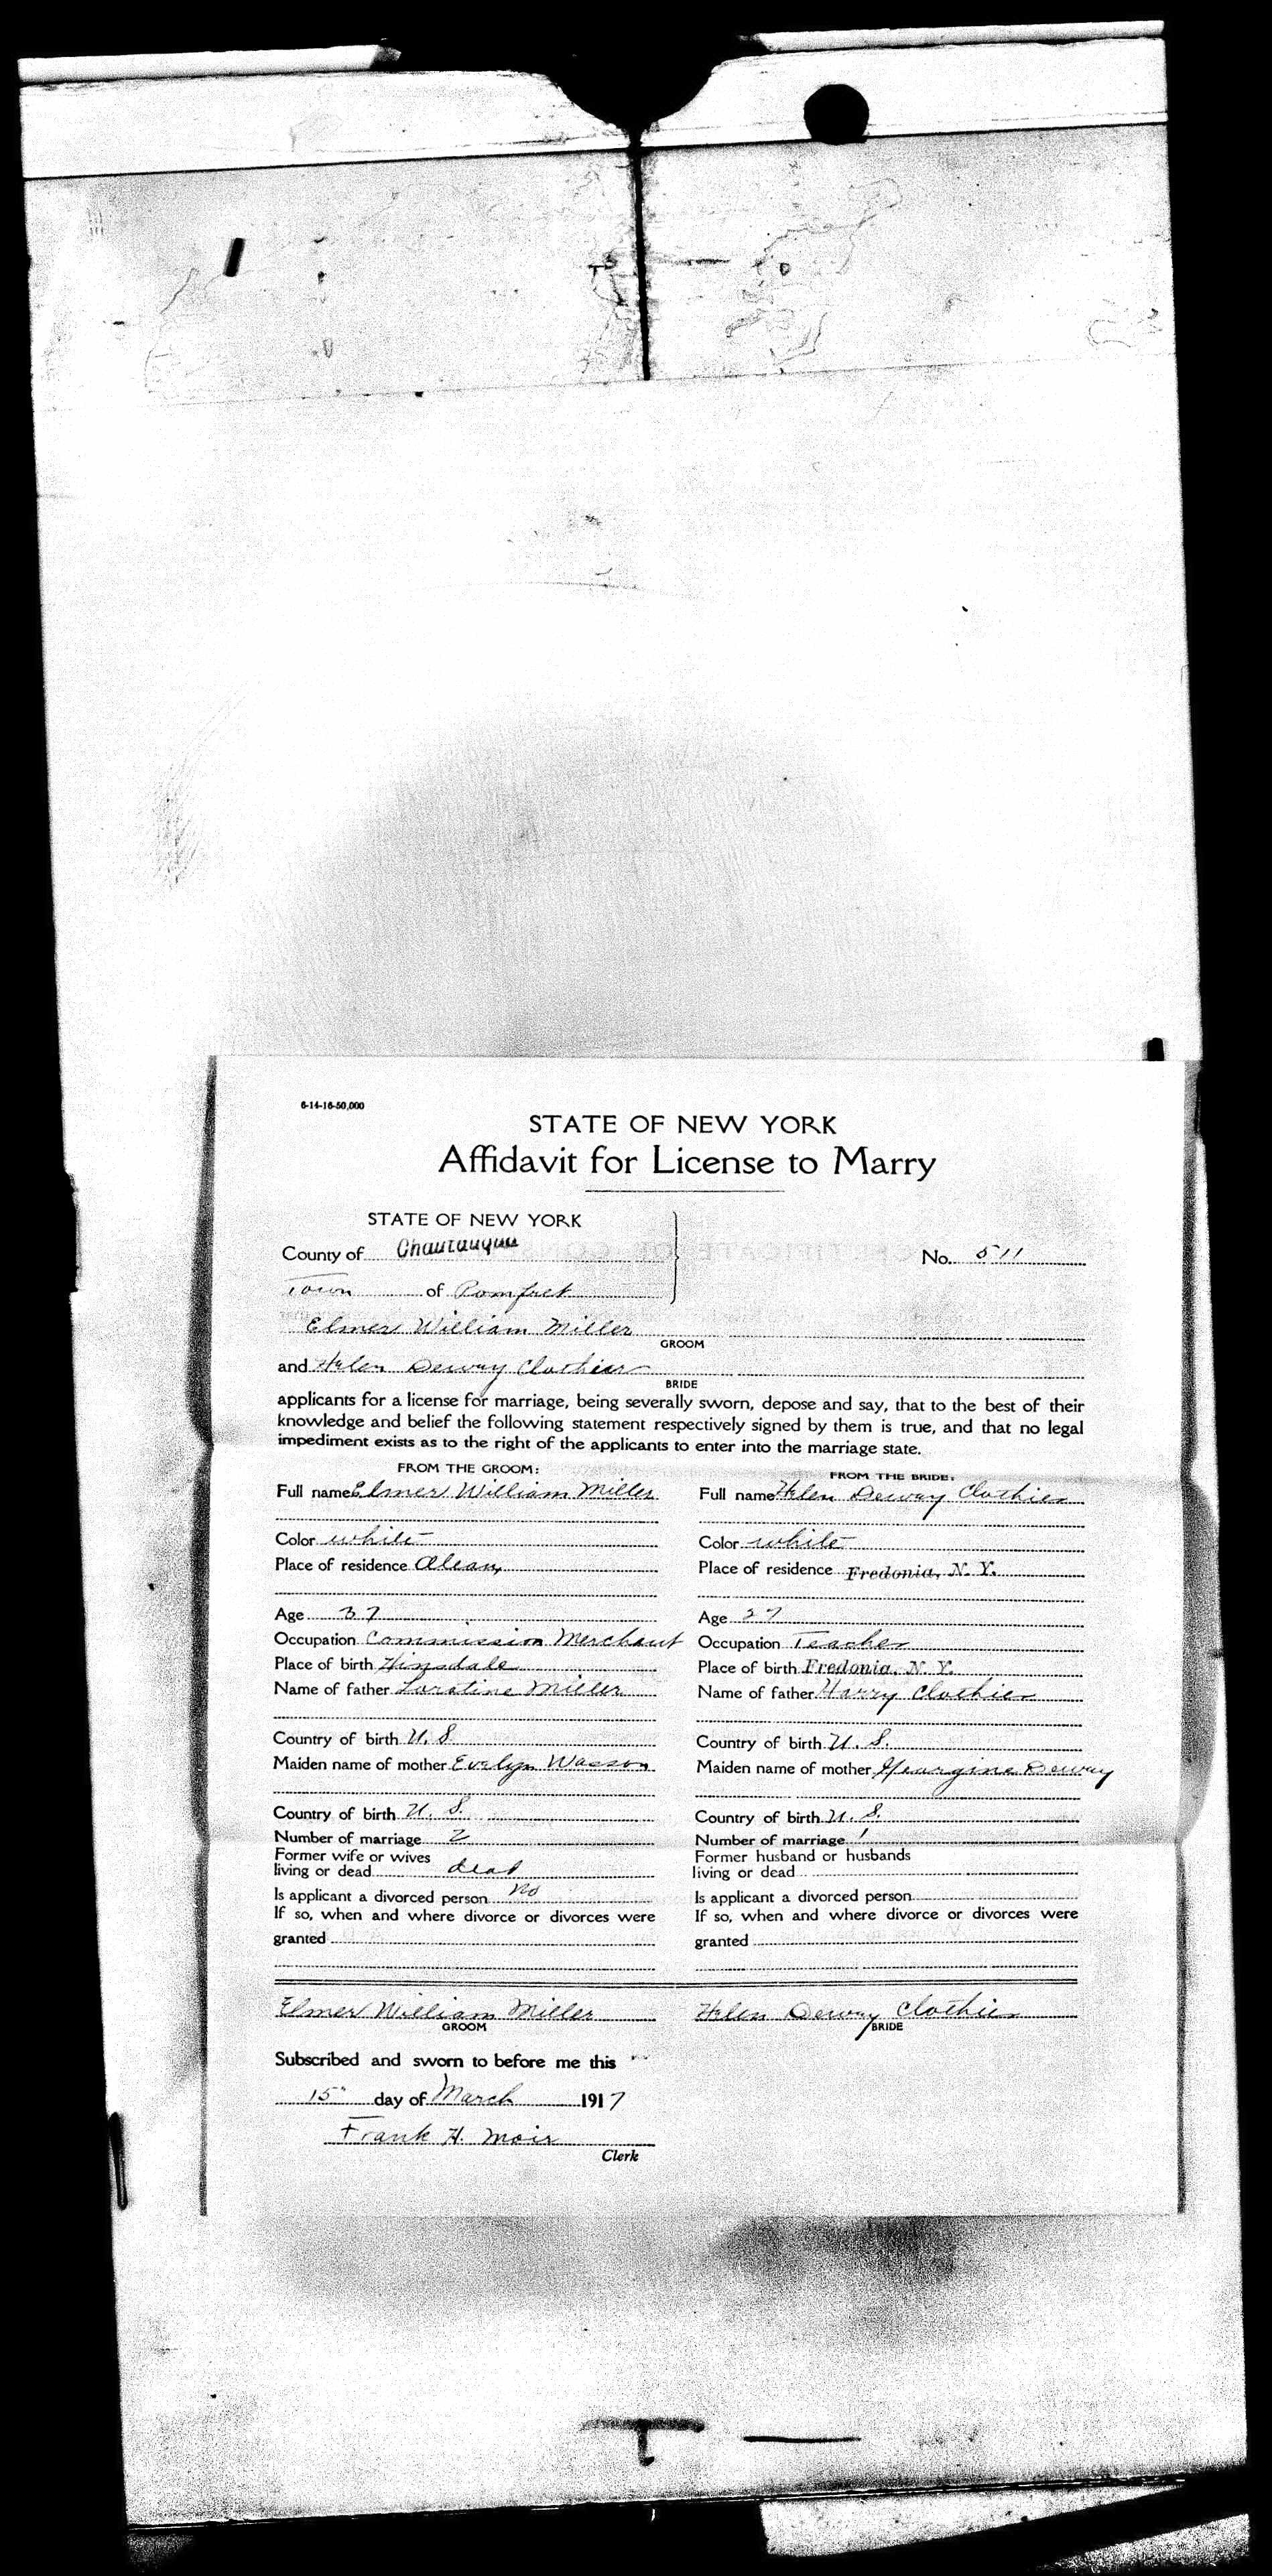 6-14-16-50,000
STATE OF NEW YORK
Affidavit for License to Marry
STATE OF NEW YORK
County of Chautauqua
No. 511
Town of Pomfret
Elmer William Miller
GROOM
and Helen Dewey Clothier
BRIDE
applicants for a license for marriage, being severally sworn, depose and say, that to the best of their
knowledge and belief the following statement respectively signed by them is true, and that no legal
impediment exists as to the right of the applicants to enter into the marriage state.
FROM THE GROOM:
Full name Elmer William Miller
Color white
Place of residence Olean,
Age 37
Occupation Commission Merchant
Place of birth Hinsdale
Name of father Miller
Country of birth U. S.
Maiden name of mother Evelyn Wasson
Country of birth U. S.
Number of marriage 2
Former wife or wives
living or dead dead
Is applicant a divorced person no
If so, when and where divorce or divorces were
granted
FROM THE BRIDE:
Full name Helen Dewey Clothier
Color white
Place of residence Fredonia, N. Y.
Age 27
Occupation Teacher
Place of birth Fredonia, N. Y.
Name of father Harry Clothier
Country of birth U. S.
Maiden name of mother Georgina Dewey
Country of birth U. S.
Number of marriage 1
Former husband or husbands
living or dead
Is applicant a divorced person
If so, when and where divorce or divorces were
granted
Elmer William Miller
GROOM
Helen Dewey Clothier
BRIDE
Subscribed and sworn to before me this
15" day of March 1917
Frank H. Moir
Clerk